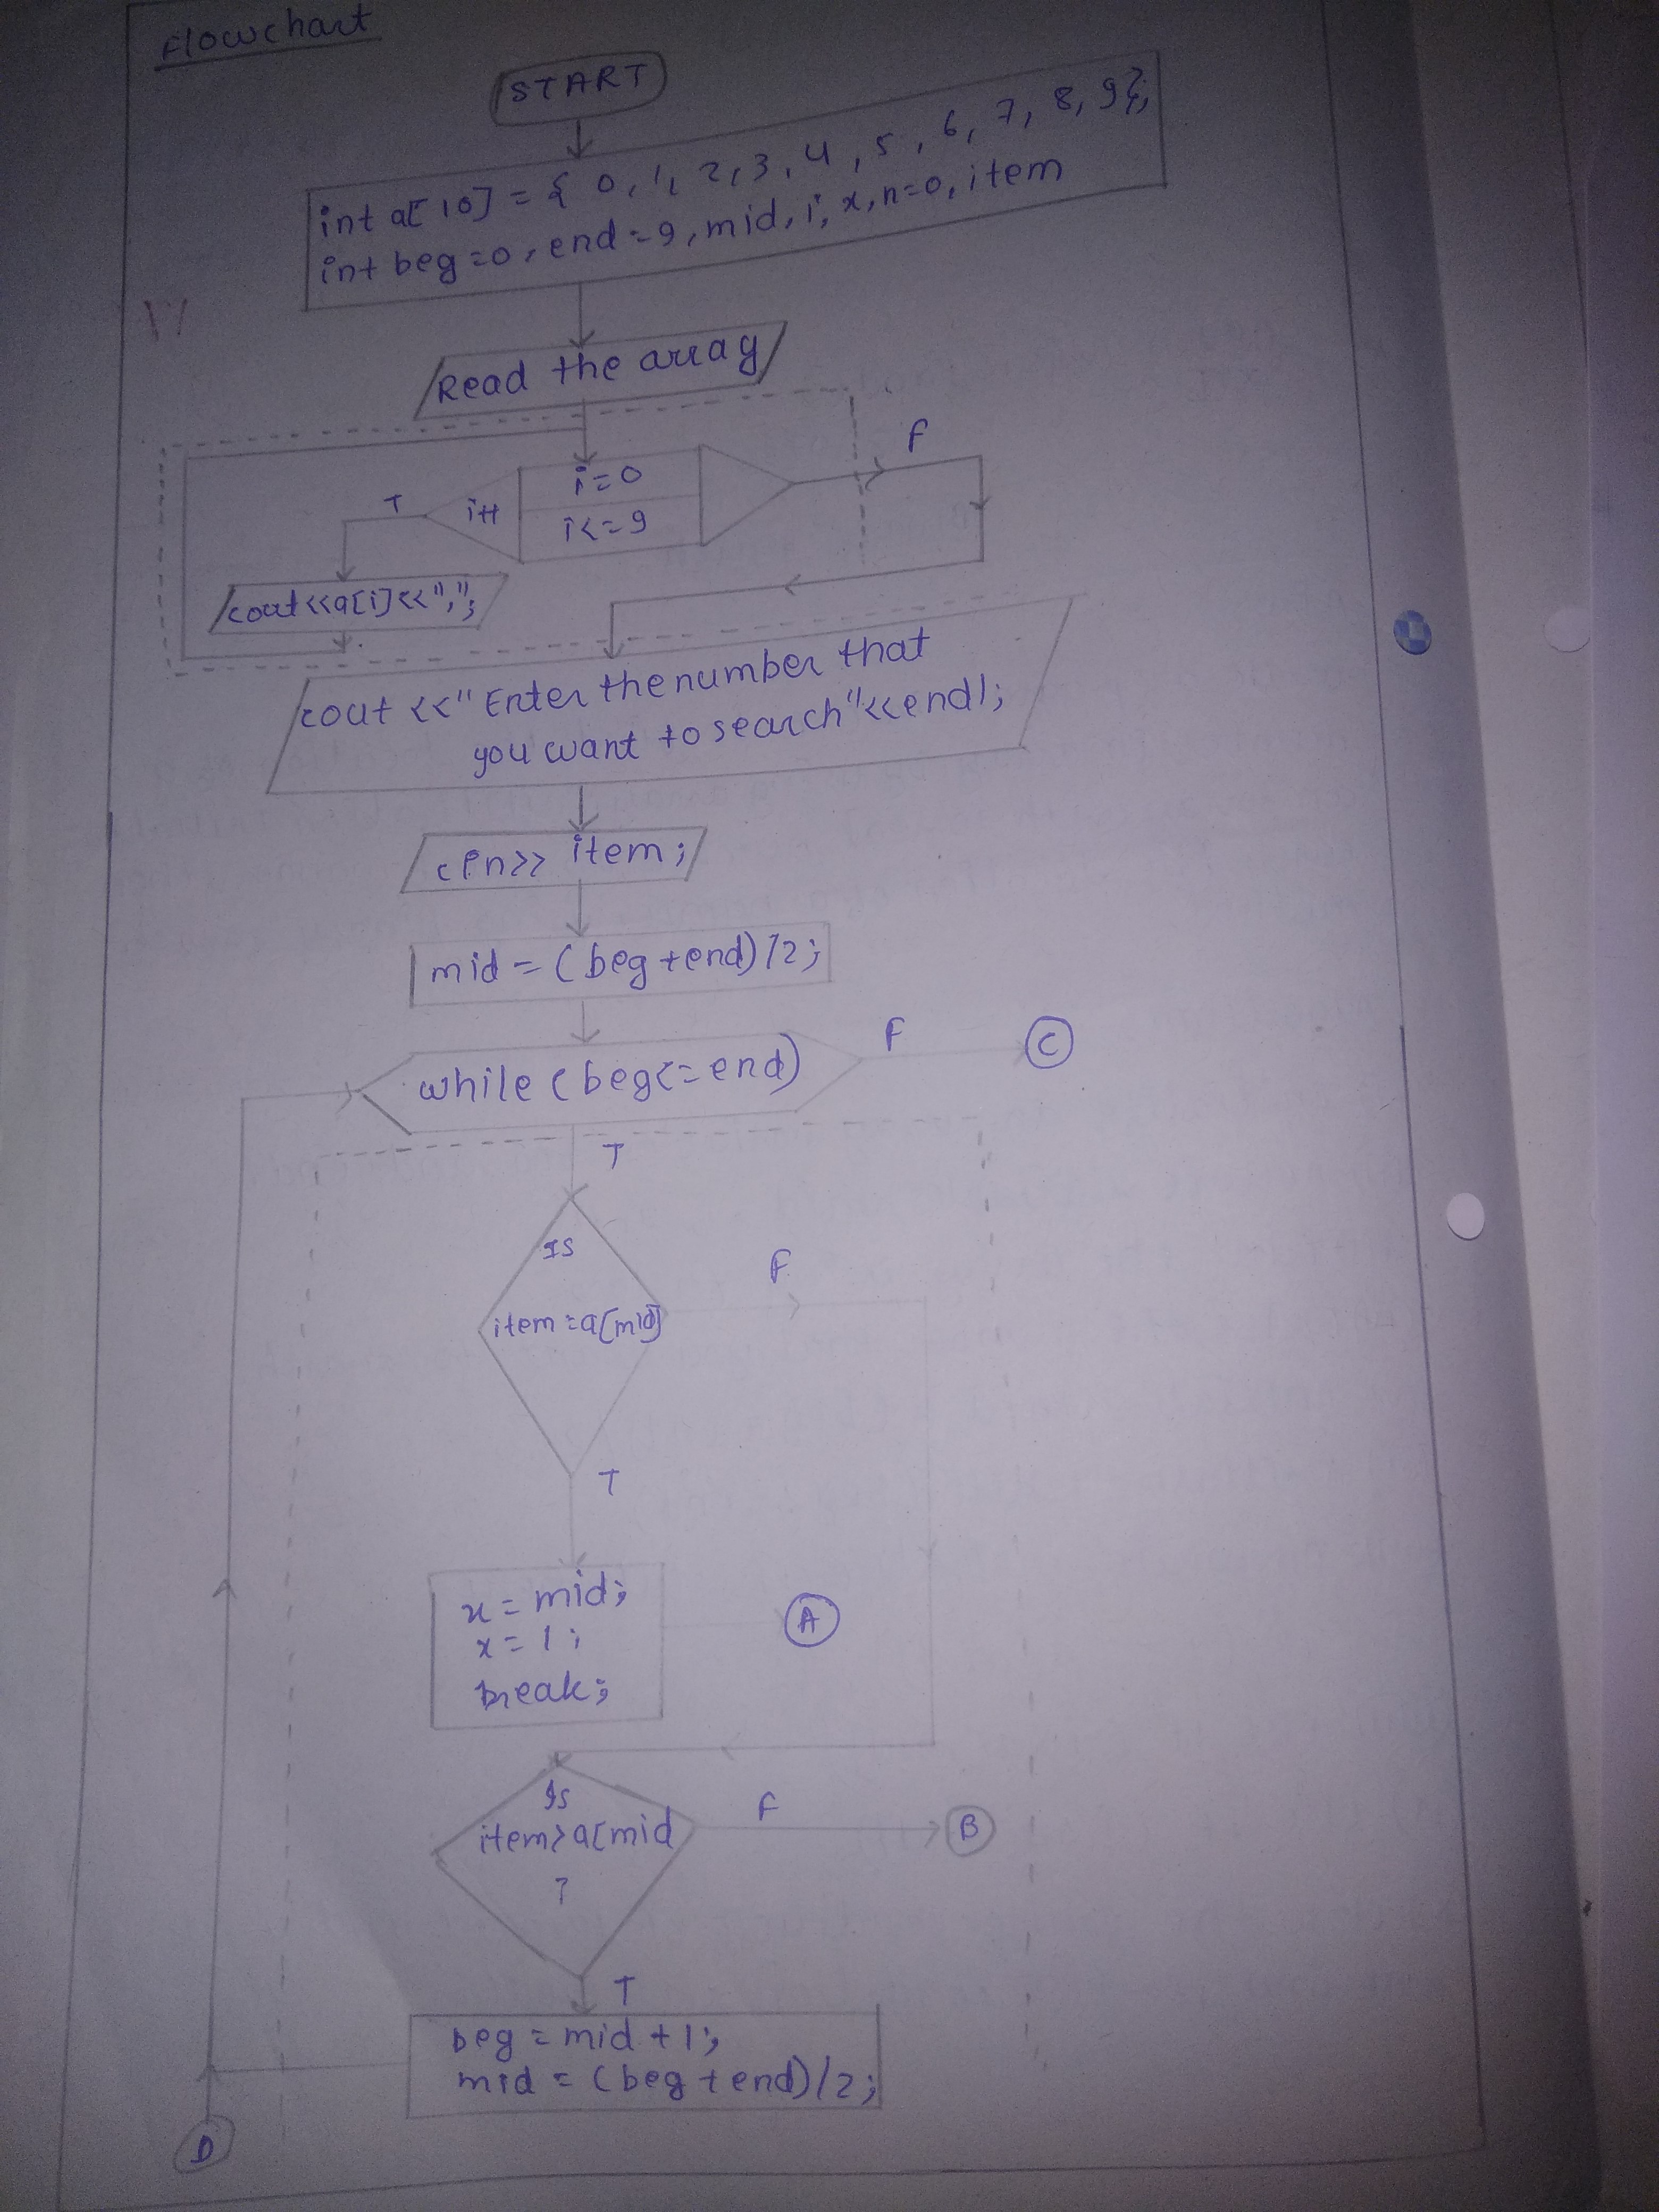 Flowchart
START
int a[10] = { 0, 1, 2, 3, 4, 5, 6, 7, 8, 9};
int beg=0, end=9, mid, i, x, n=0, item
Read the array
F
i=0
T
i++
i<=9
cout<<a[i]<<",";
cout <<" Enter the number that
you want to search"<<endl;
cin>> item;
mid = (beg+end)/2;
F
C
while (beg<=end)
T
IS
F
item=a[mid]
T
x = mid;
A
x = 1;
break;
Is
F
item>a[mid
B
?
T
beg = mid + 1;
mid = (beg+end)/2;
D